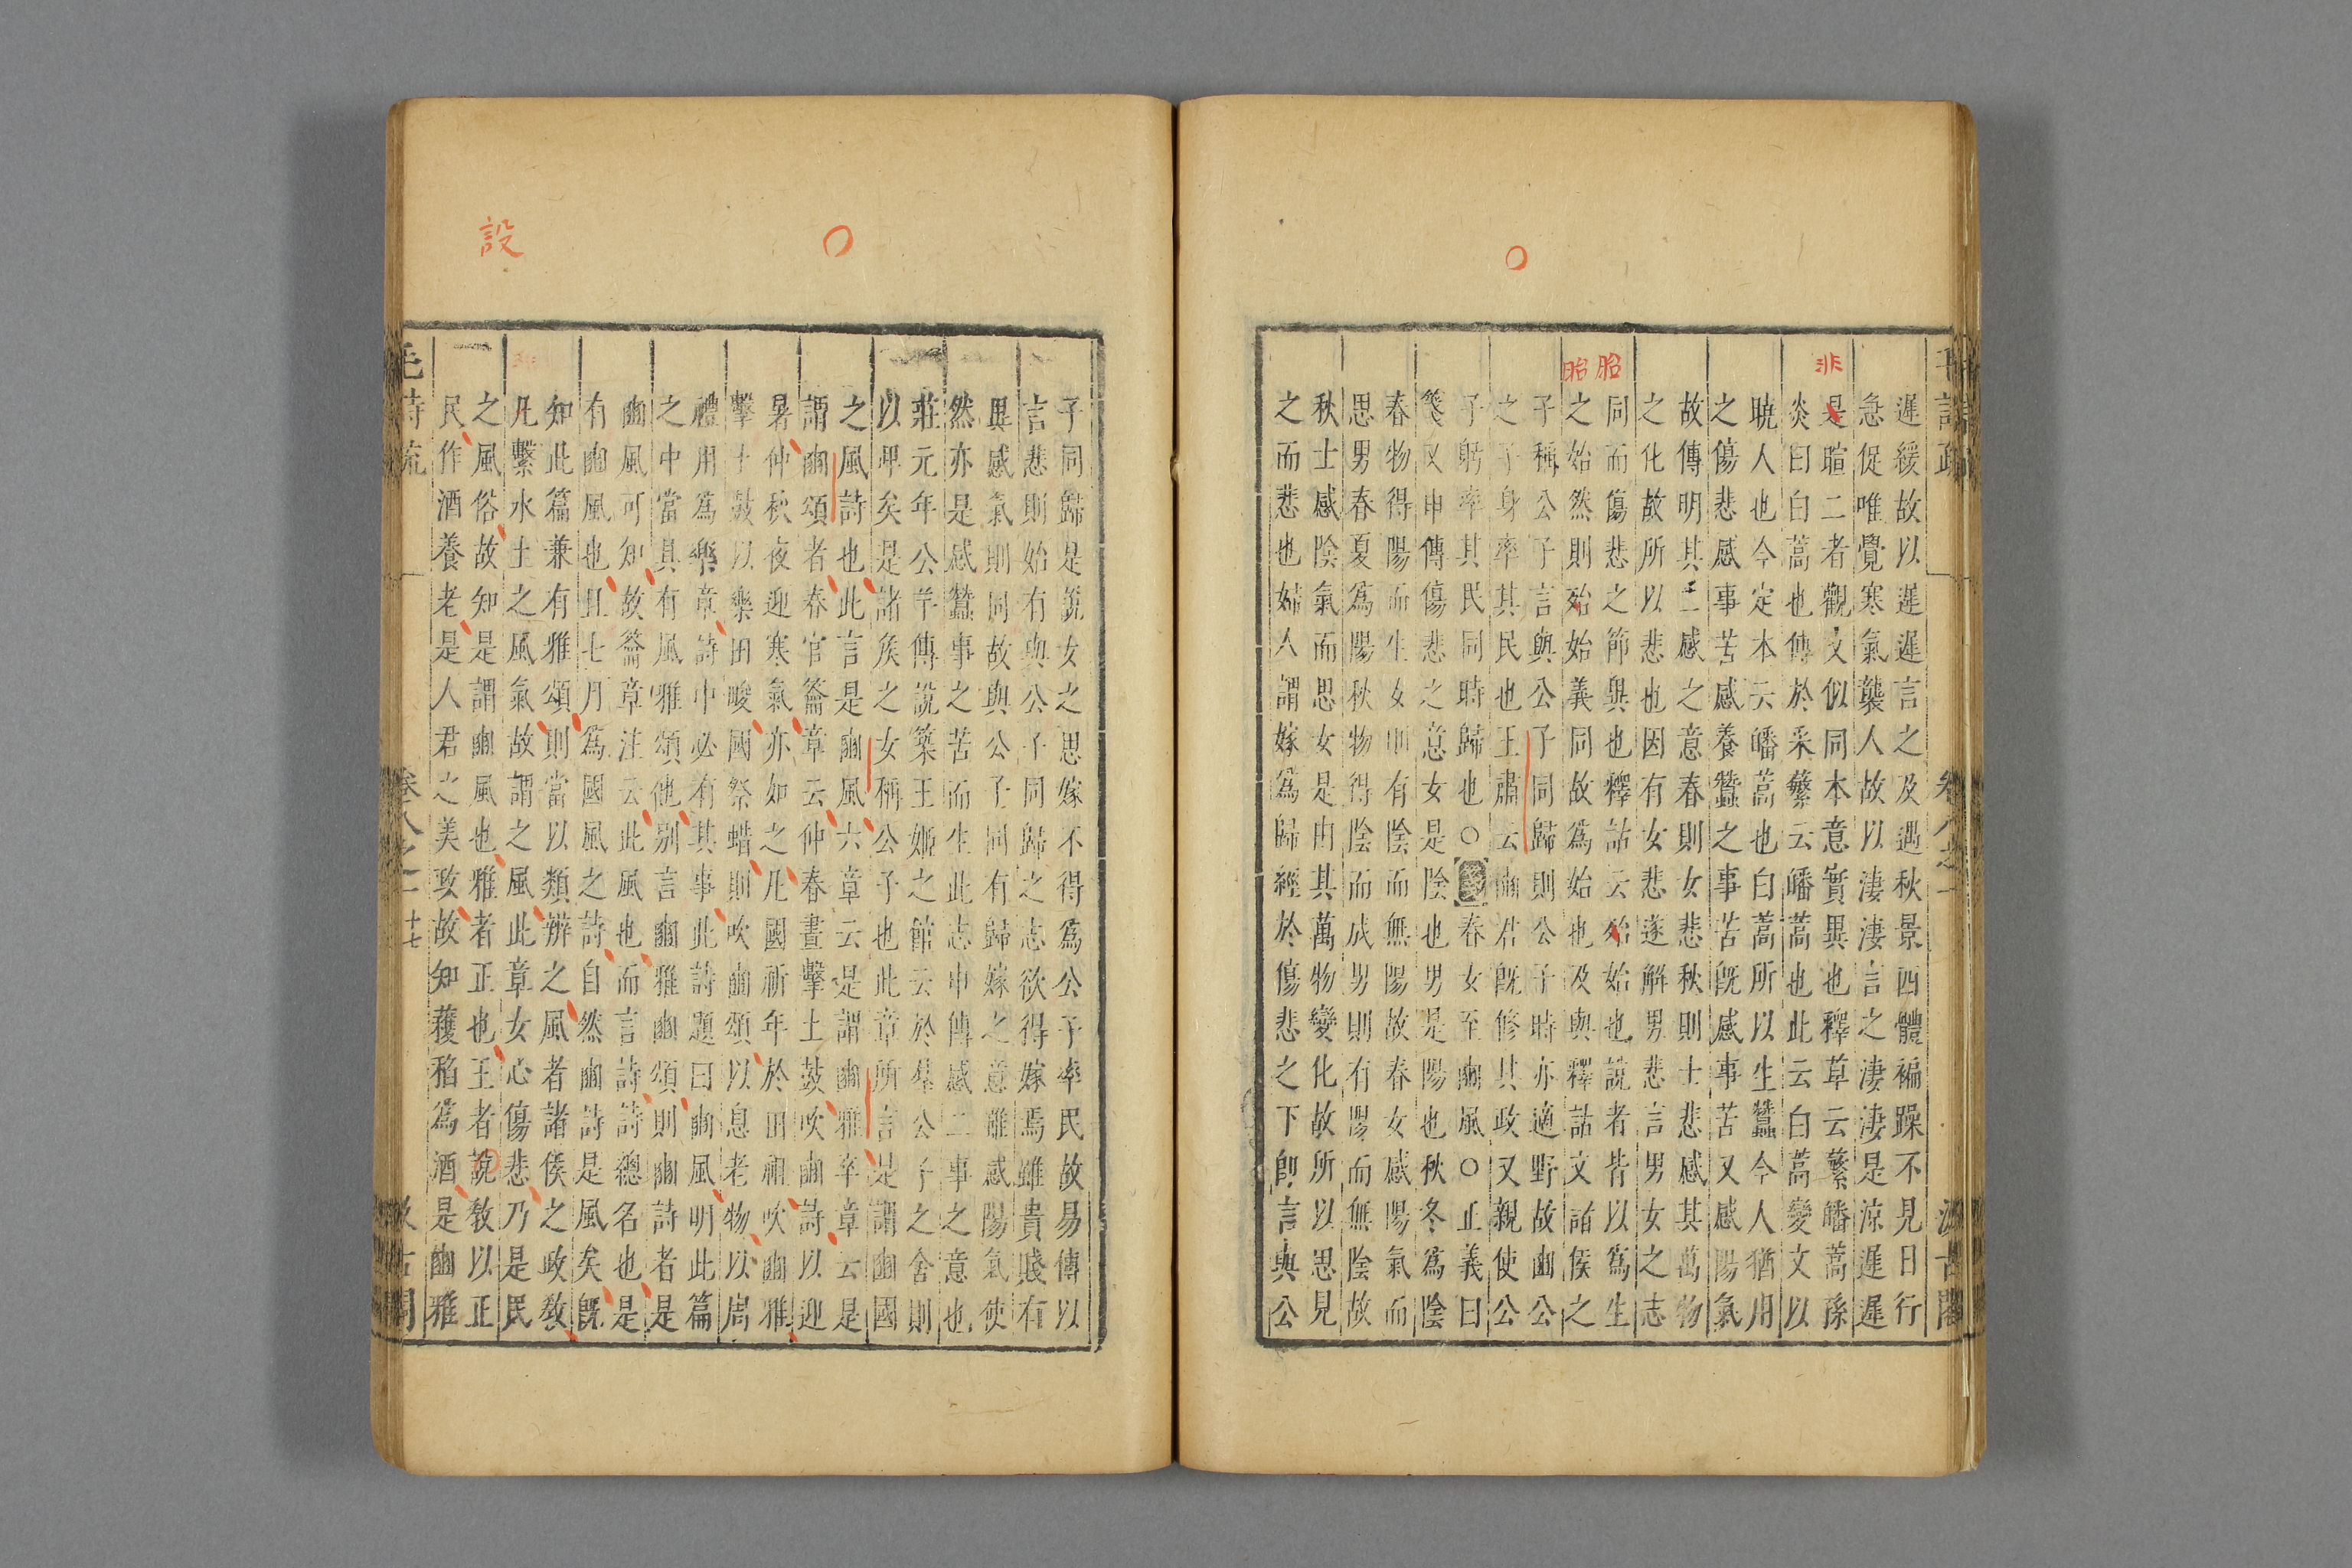 設
○
○
非
胎
胎
毛詩疏
卷八之一
汲古閣
遲緩故以遲遲言之及遇秋景四體褊躁不見日行
急促唯覺寒氣襲人故以淒淒言之淒淒是涼遲遲
是暄二者觀文似同本意實異也釋草云蘩皤蒿孫
炎曰白蒿也傳於采蘩云皤蒿也此云白蒿變文以
曉人也今定本云皤蒿也白蒿所以生蠶今人猶用
之傷悲感事苦感養蠶之事苦旣感事苦又感陽氣
故傳明其二感之意春則女悲秋則士悲感其萬物
之化故所以悲也因有女悲遂解男悲言男女之志
同而傷悲之節與也釋詁云殆始也說者皆以爲生
之始然則殆始義同故爲始也及與釋詁文諸侯之
子稱公子言與公子同歸則公子時亦適野故豳公
之子身率其民也王肅云豳君旣修其政又親使公
子躬率其民同時歸也○春女至豳風○正義曰
箋又申傳傷悲之意女是陰也男是陽也秋冬爲陰
春物得陽而生女則有陰而無陽故春女感陽氣而
思男春夏爲陽秋物得陰而成男則有陽而無陰故
秋士感陰氣而思女是由其萬物變化故所以思見
之而悲也婦人謂嫁爲歸經於傷悲之下卽言與公
子同歸是說女之思嫁不得爲公子率民故易傳以
言悲則始有與公子同歸之志欲得嫁焉雖貴賤有
與感氣則同故與公子同有歸嫁之意雖感陽氣使
然亦是感蠶事之苦而生此志申傳感二事之意也
莊元年公羊傳說築王姬之館云於羣公子之舍則
以卑矣是諸侯之女稱公子也此章所言是謂豳國
之風詩也此言是豳風六章云是謂豳雅卒章云是
謂豳頌者春官籥章云仲春晝擊土鼓吹豳詩以迎
暑仲秋夜迎寒氣亦如之凡國祈年於田祖吹豳雅
擊土鼓以樂田畯國祭蜡則吹豳頌以息老物以周
禮用爲樂章詩中必有其事此詩題曰豳風明此篇
之中當具有風雅頌他別言豳雅豳頌則豳詩者是
豳風可知故籥章注云此風也而言詩詩總名也是
有豳風也且七月爲國風之詩自然豳詩是風矣旣
知此篇兼有雅頌則當以類辨之風者諸侯之政敎
凡繫水土之風氣故謂之風此章女心傷悲乃是民
之風俗故知是謂豳風也雅者正也王者說敎以正
民作酒養老是人君之美政故知穫稻爲酒是豳雅
毛詩疏
卷八之一
十七
汲古閣